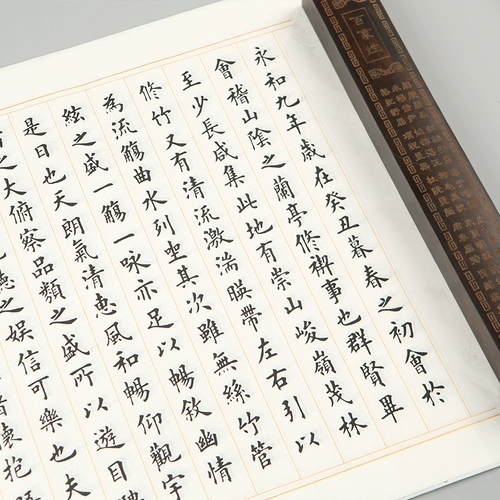 永和九年歲在癸丑暮春之初會於
會稽山陰之蘭亭修禊事也群賢畢
至少長咸集此地有崇山峻嶺茂林
修竹又有清流激湍暎帶左右引以
為流觴曲水列坐其次雖無絲竹管
絃之盛一觴一咏亦足以暢敘幽情
是日也天朗氣清惠風和暢仰觀宇
之大俯察品類之盛所以遊目
之娛信可樂也夫
懷抱
百家姓